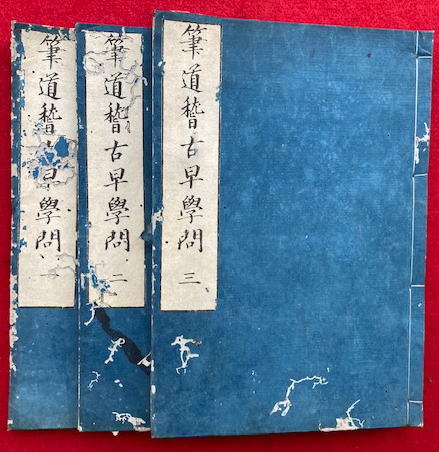 筆道稽古早學問 三
筆道稽古早學問 二
筆道稽古早學問 一